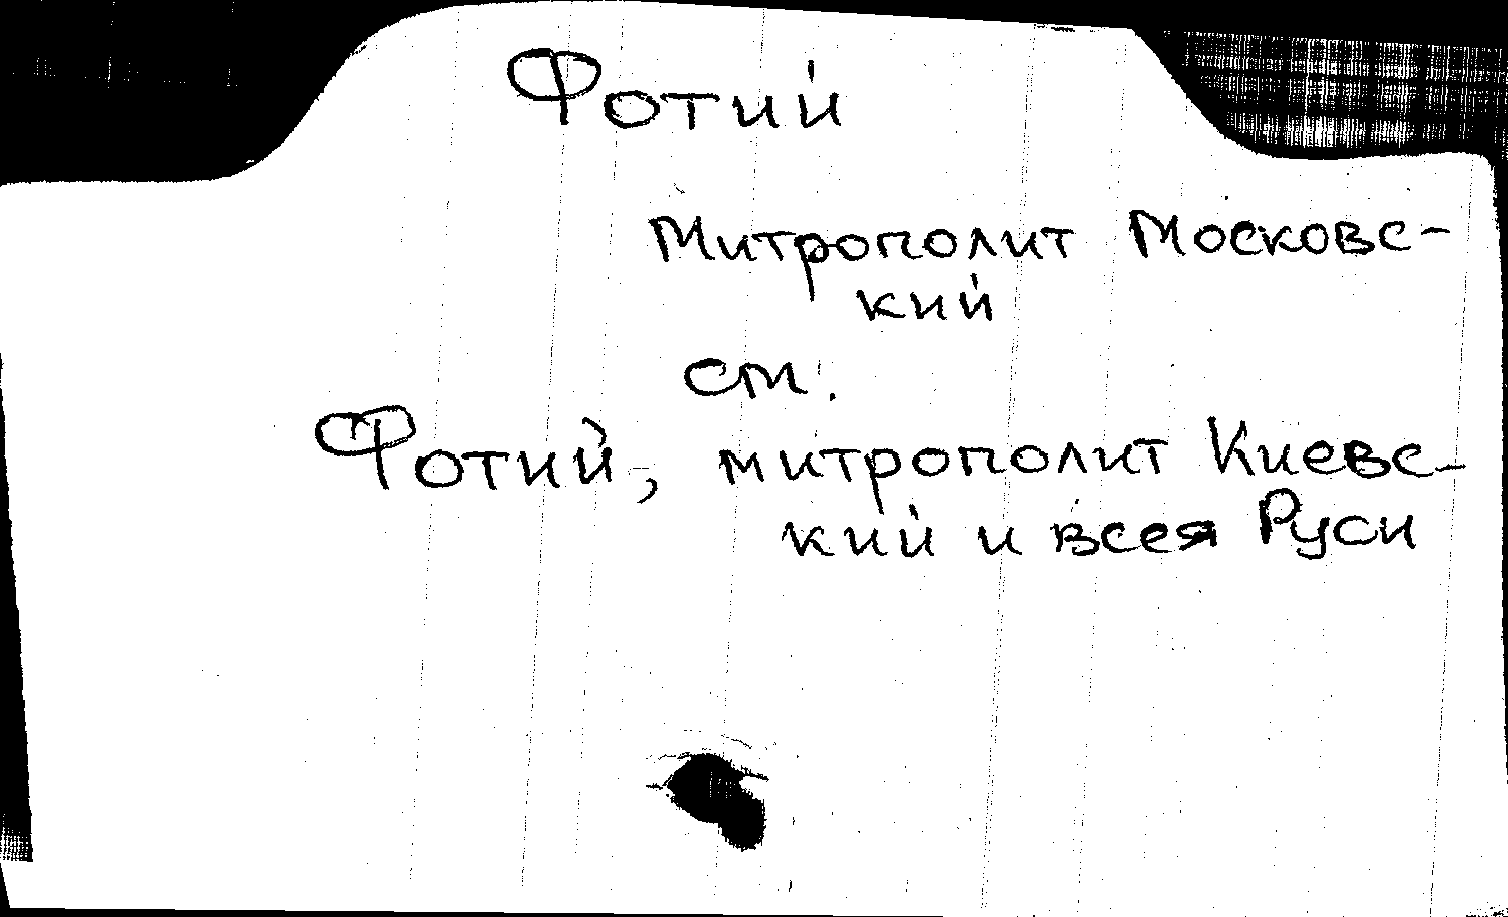 Фотий
Митрополит Московс-
кий
см.
Фотий, митрополит Киевс-
кий и всея Руси